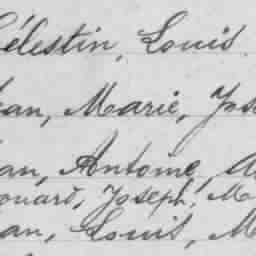 Célestin, Louis
Jean, Marie, Jos
Jean, Antoine, A
Edouard, Joseph, M
Jean, Louis, M